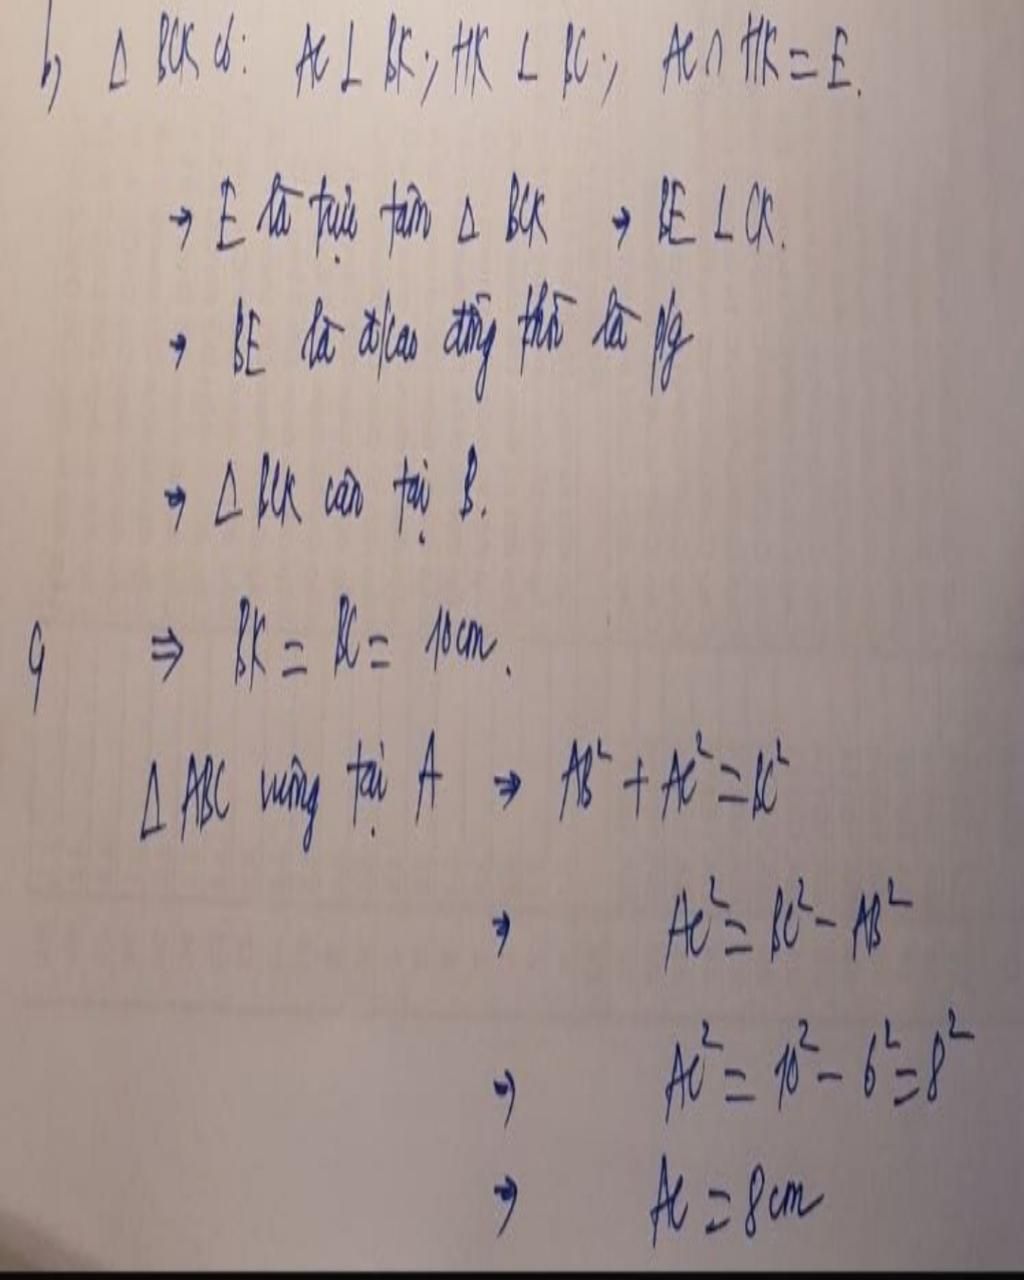 b, Δ BCK có: AC ⊥ BK; HK ⊥ BC; AC ∩ HK = E.
→ E là trực tâm Δ BCK → BE ⊥ CK.
→ BE là đ/cao đồng thời là p/g
→ Δ BCK cân tại B.
c, ⇒ BK = BC = 10cm.
Δ ABC vuông tại A → AB² + AC² = BC²
→ AC² = BC² - AB²
→ AC² = 10² - 6² = 8²
→ AC = 8cm